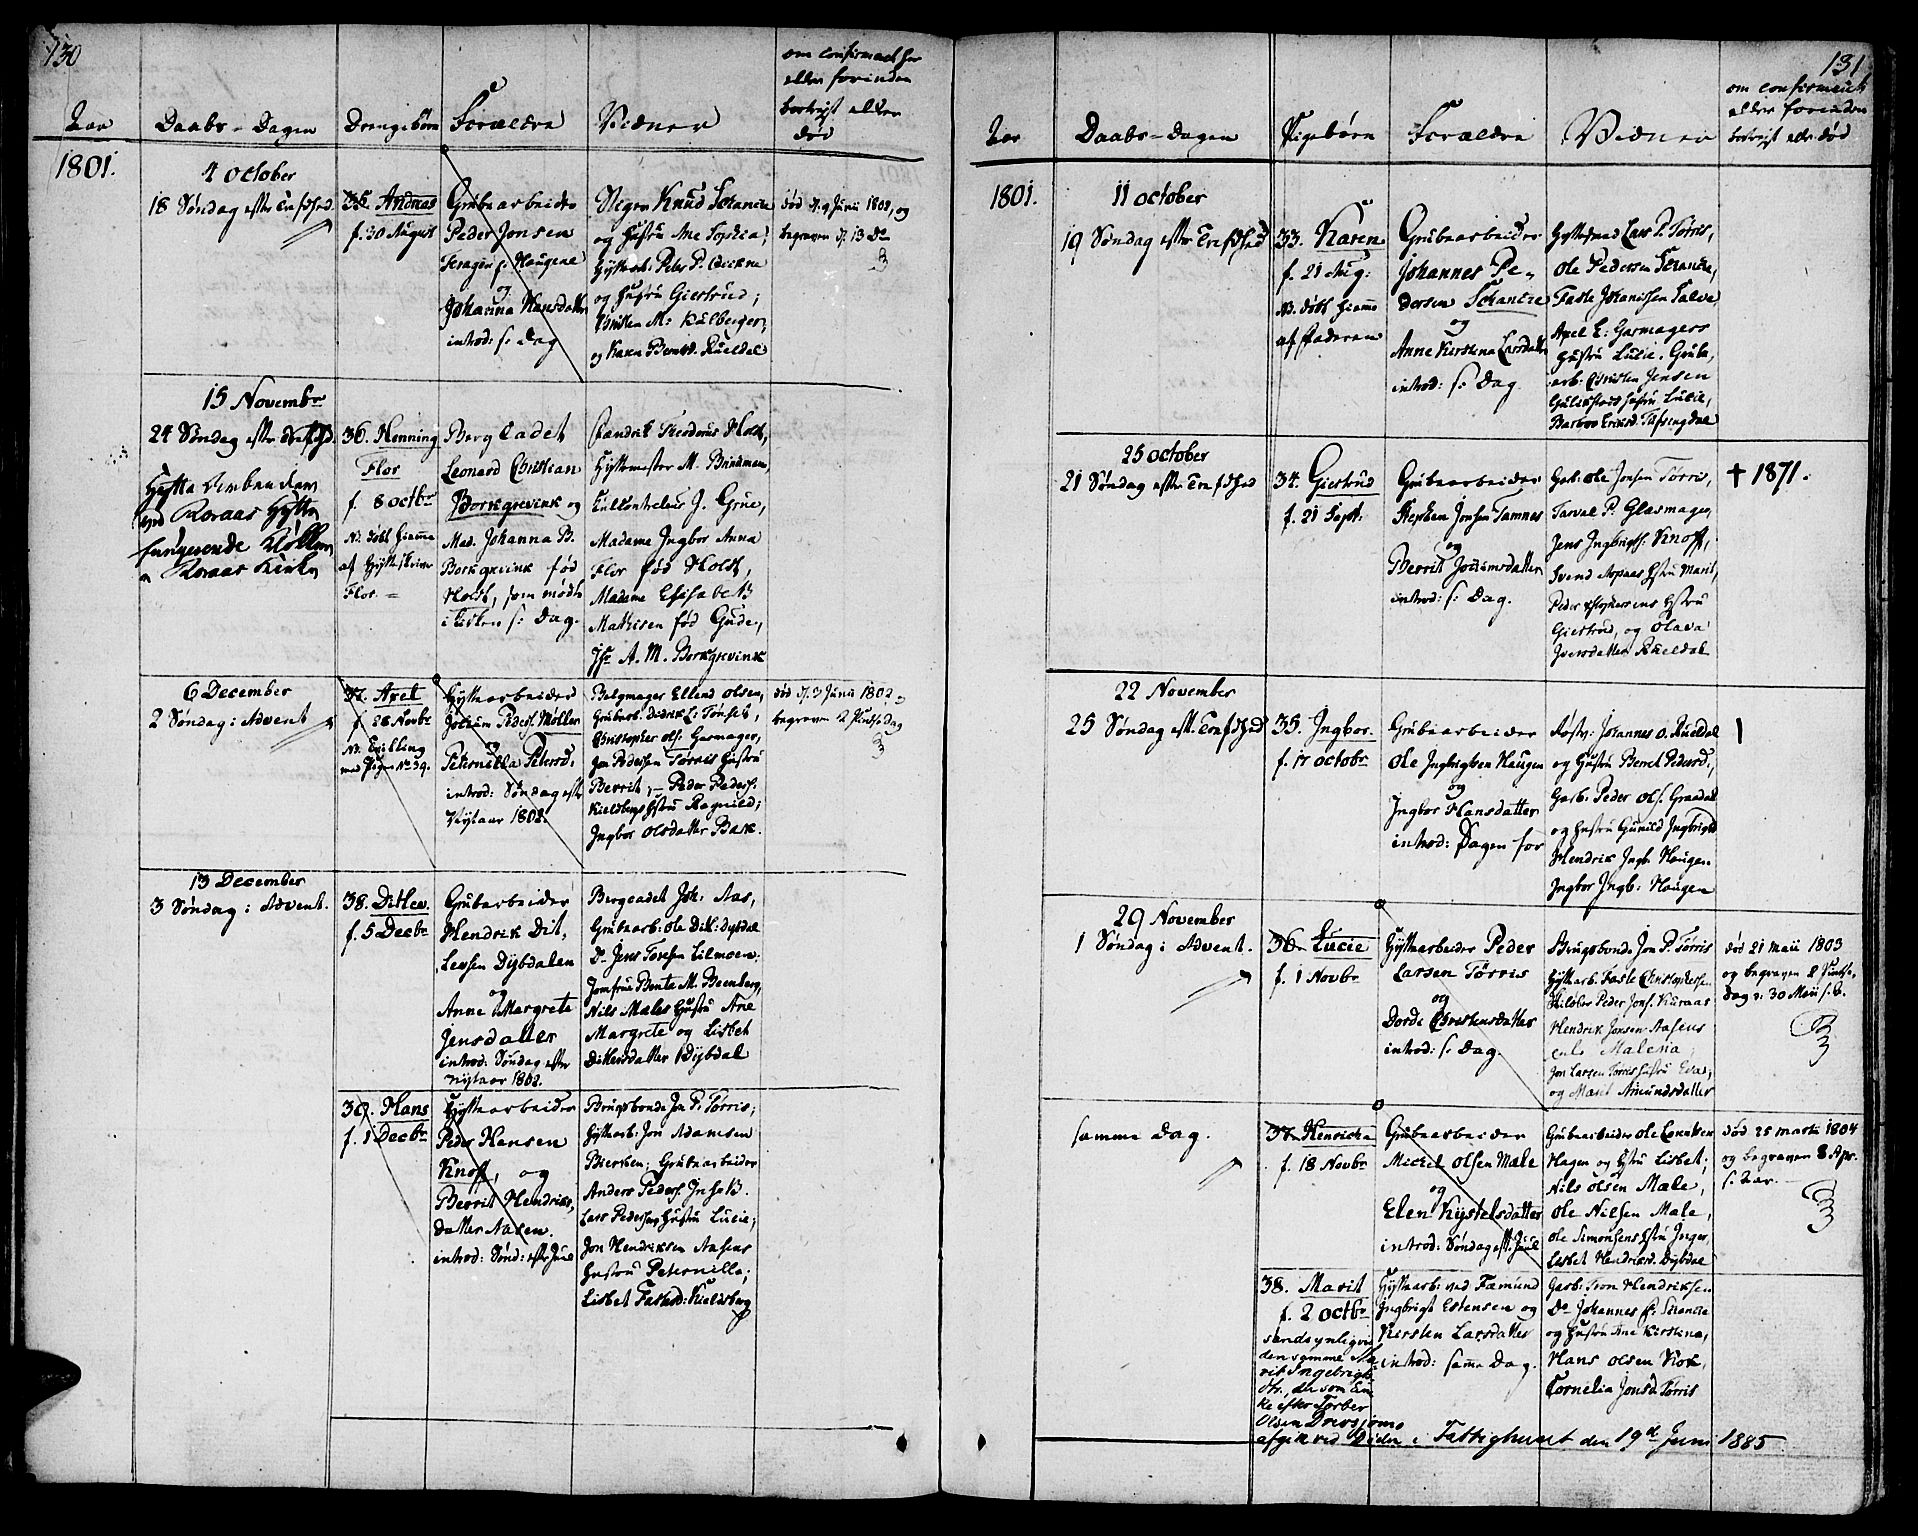 130
Aar
Daabs-Dagen
Drengebørn
Forældre
Vidner
om confirmeret her
eller forinden
bortrejst eller
død
1801.
4 October
18 Søndag efter Trefdhed.
35. Andreas
f. 30 August
Grubearbeider
Peder Jonsen
Haugene
og
Johanna Hansdatter
introd: s: Dag
Knud
og Hustru Ane Sophia;
Hyttearb: Peder P.
og Hustru Giertrud;
Christen M:
og Karen Berntsd. Rueldal
død d. 9 Junii 1802, og
begraven d. 13 Do
15 Novembr
24 Søndag efter Trefdhed.
ved Røraas Hytte
fungerende
Røraas Kirke
36. Henning
Flor
f. 8 Octbr
N. døbt hiemme
af Hytteskriver
Flor.
Berg Cadet
Leonard Christian
Borkgrevink og
Mad. Johanna B.
Borkgrevink fød
Holst, som mødte
i Kirken s: Dag.
Theodorus Holst,
Hyttemester M. Brinchmann,
J. Grue,
Madame Ingbor Anna
Flor fød Holst,
Madame Elisabeth
Mathisen fød Gude,
Jfr A. M. Borkgrevink
6 December
2 Søndag i Advent
37. Axel
f. 28 Novbr
N. Tvilling
med Pigen No 39.
Hyttearbeider
Jochum Peders. Møller
og
Peternilla Petersd:
introd: Søndag efter
Nytaar 1802.
Belgmager Ellend Olsen,
Grubearb. Didrik L: Tønset,
Christopher Ols: Garmager,
Jon Pedersen Tørris Hustru
Berrit, – Peder Peders:
Kieldbergs Hstru Ragnild;
Ingbor Olsdatter Bakk.
død d. 3 Junii 1802,
begraven 2 Pindsedag
13 December
3 Søndag i Advent.
38. Ditlev.
f. 5 Decbr
Grubearbeider
Hendrik Dit,
Levsen Dybdalen
og
Anne Margrete
Jensdatter
introd: Søndag efter
Nytaar 1802.
Bergcadet Joh: Aas,
Grubearb: Ole Ditl: Dybdal
Do Jens Torsen Lilmoen;
Jomfru Benta M. Beenberg,
Nils Mæles Hustru Ane
Margrete og Lisbet
Ditlevsdatter Dybdal
39. Hans
f. 1 Decbr
Hyttearbeider
Peder Hansen
Knoff, og
Berrit Hendriks,
datter Aasen.
introd: Sønd: efter Juul
Brugsbonde Jon P. Tørris;
Hyttearb: Jon Adamsen
Grubearbeider
Anders Peders:
Lars Pedersens Hustru Lucie;
Jon Hendriksen Aasens
Hustru Peternilla;
Lisbet Fastesd: Kieldberg
131
Aar
Daabs-Dagen
Pigebørn
Forældre
Vidner
om confirmeret
eller forinden
bortrejst eller død
1801.
11 October
19 Søndag efter Trefdhed
33. Karen
f. 21 Aug:
N. døbt hiemme
af Faderen
Grubearbeider
Johannes Pe-
dersen
og
Anne Kirstina Larsdatter
introd: s: Dag.
Hyttemed Lars P. Tørris,
Ole Pedersen
Faste Johannsen
Axel E: Garmagers
Hustru Lucie. Grube,
arb. Christen Jensen
Hustru Lucie,
Barbro Eriksd.
25 October
21 Søndag efter Trefdhed
34. Giertrud
f. 21 Sept:
Grubearbeider
Stephen Jonsen Tamnes
og
Berrit Jochumsdatter
introd: s: Dag.
Garb: Ole Jonsen Tørris,
Tarval P. Glasmager,
Jens Ingbrigts: Knoff,
Svend Aspaas Hstru Marit,
Peder Christophersens Hstru
Giertrud, og Olava
Iversdatter Rueldal
† 1871.
22 November
25 Søndag eft. Trefdhed
35. Ingbor.
f. 17 Octobr
Grubearbeider
Ole Ingbrigtsen Haugen
og
Ingbor Hansdatter
introd: Dagen for
Røstv: Johannes O. Rueldal
og Hustru Berret Pedersd:,
Garb. Peder Ols: Graadal
og Hustru Gunild Ingbrigtsd
Hendrik Ingb. Haugen
Ingbor Ingb: Haugen
29 November
1 Søndag i Advent.
36. Lucie
f. 1 Novbr
Hyttearbeider Peder
Larsen Tørris
og
Dordi Christensdatter
introd: s. Dag.
Brugsbonde Jon P. Tørris
Hyttearb. Faste Christophersen
Peder Jons. Kuraas
Hendrik Jonsen Aasens
Malena;
Jon Larsen Tørris Hustru Eva,
og Marit Amundsdatter
død 21 Maii 1803
og begraven 2 Pindse,
dag d: 30 Maii s. A.
samme Dag.
37. Henricka
f. 18 Novbr
Grubearbeider
Mickel Olsen Mæle
og
Elen Kystelsdatter
introd: Søndag eft: Juul
Grubearbeider Ole Lorentsen
Hagen og Hstru Lisbet;
Nils Olsen Mæle,
Ole Nielsen Mæle,
Ole Simonsens Hstru Inger,
Lisbet Hendriksd. Dybdal
død 25 Martii 1804
og begraven 8 Apr.
s. Aar.
38. Marit
f. 2 Octbr
sandsynligvis
den samme Ma-
rit Ingebrigts-
dtr., der som En-
ke efter Torber
Olsen Drevsjømo
afgik ved Døden i Fattighuset den 19d Juni 1885
Hyttearb: ved Fæmund
Ingbrigt Estensen og
Kiersten Larsdatter
introd: samme Dag.
Garb: Tron Hendriksen
Do Johannes P.
og Hustru Ane Kirstina,
Hans Olsen Kok,
Cornelia Jonsd. Tørris